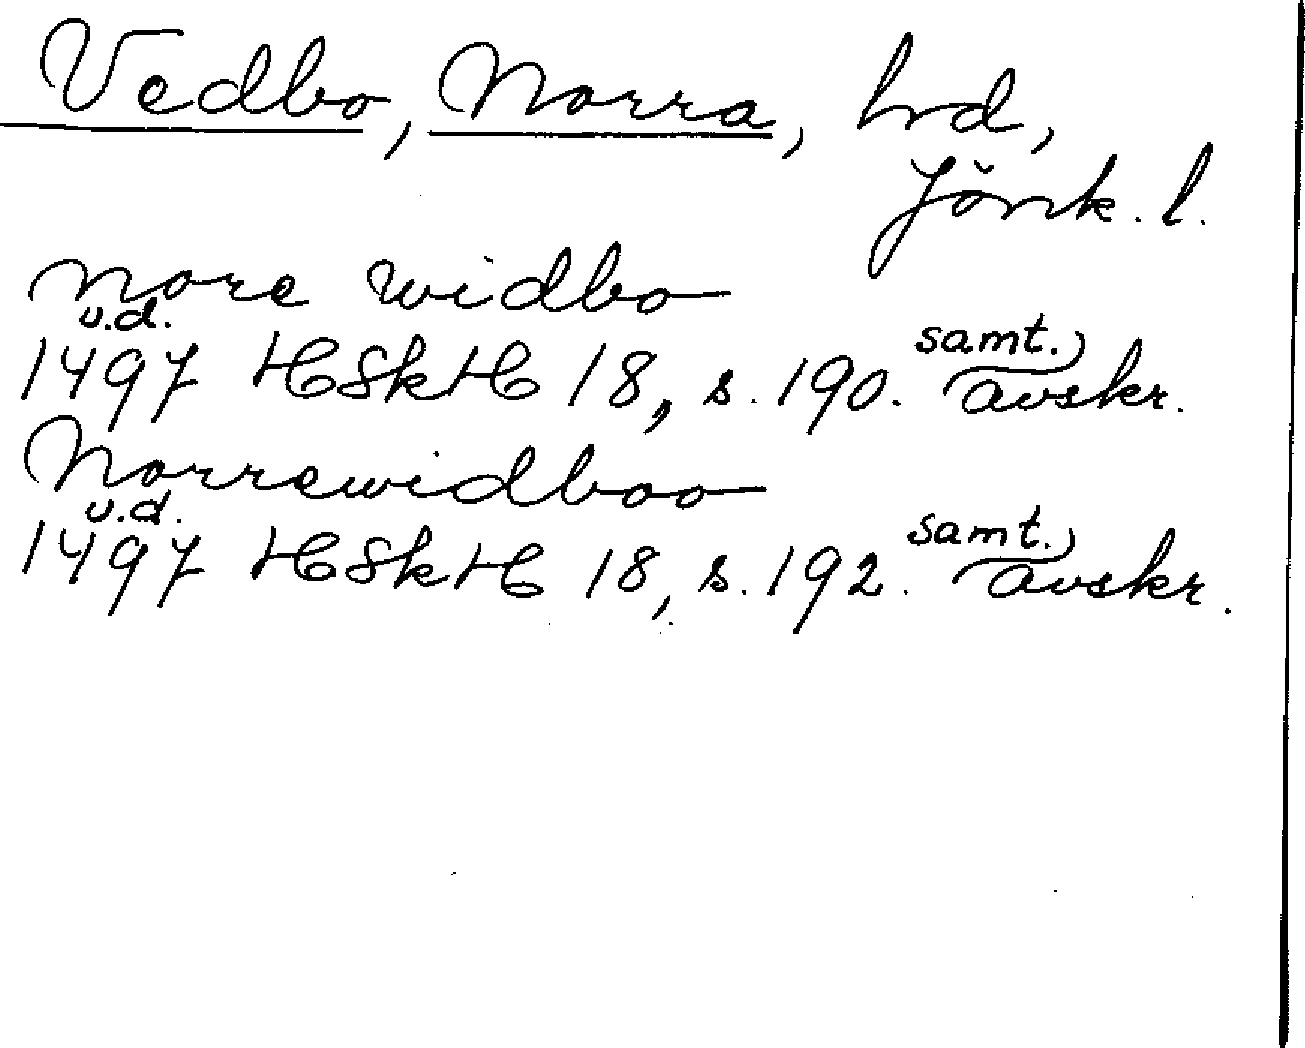 Vedbo, Norra, hrd,
Jönk. l.
nore widbo
u.d.
1497 HSkH 18, s. 190. samt. avskr.
Norrewidboo
u.d.
1497 HSkH 18, s. 192. samt. avskr.